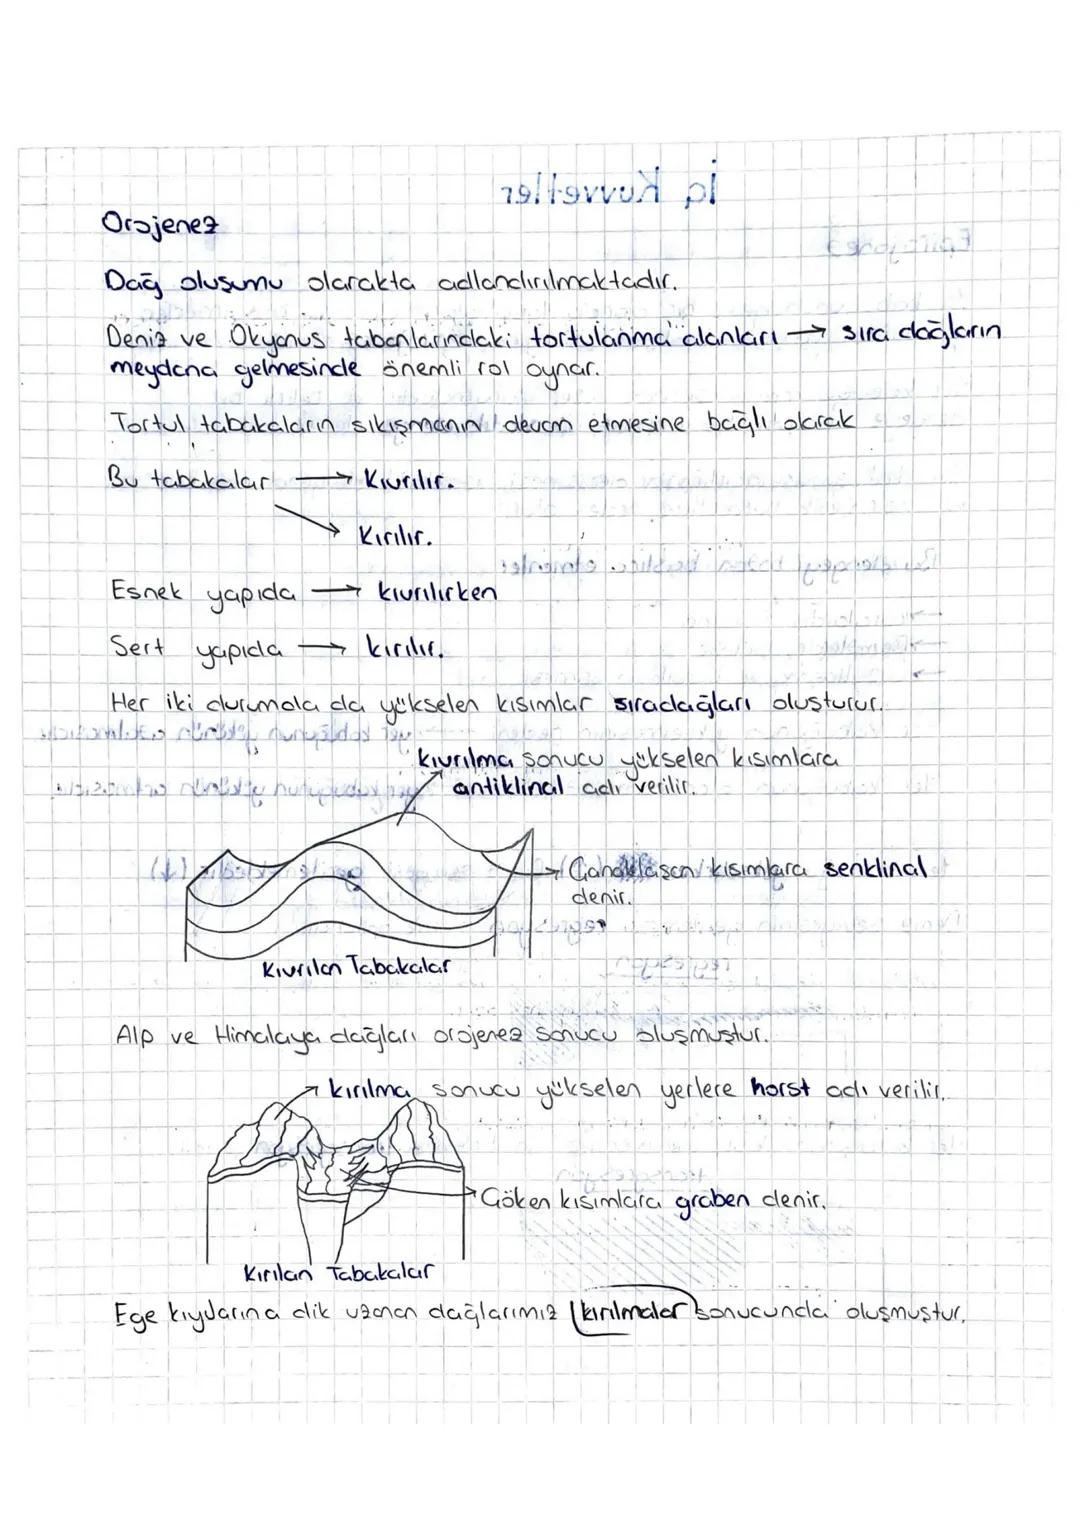 İç Kuvvetler
Orojenez
Dağ oluşumu olarakta adlandırılmaktadır.
Deniz ve Okyanus tabanlarındaki tortulanma alanları → sıra dağların
meydana gelmesinde önemli rol oynar.
Tortul tabakaların sıkışmanın devam etmesine bağlı olarak
Bu tabakalar → Kıvrılır.
→ Kırılır.
Esnek yapıda → kıvrılırken
Sert yapıda → kırılır.
Her iki durumda da yükselen kısımlar sıradağları oluşturur.
kıvrılma sonucu yükselen kısımlara
antiklinal adı verilir.
→ Çanaklaşan kısımlara senklinal
denir.
Kıvrılan Tabakalar
Alp ve Himalaya dağları orojenez sonucu oluşmuştur.
→ kırılma sonucu yükselen yerlere horst adı verilir.
→ Çöken kısımlara graben denir.
Kırılan Tabakalar
Ege kıyılarına dik uzanan dağlarımız kırılmalar sonucunda oluşmuştur.